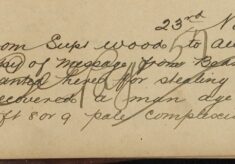 23rd N
om Supt Woods to au
of Message from Bed
anted here for stealing
ecovered a man age
ft 8 or 9 pale complexi